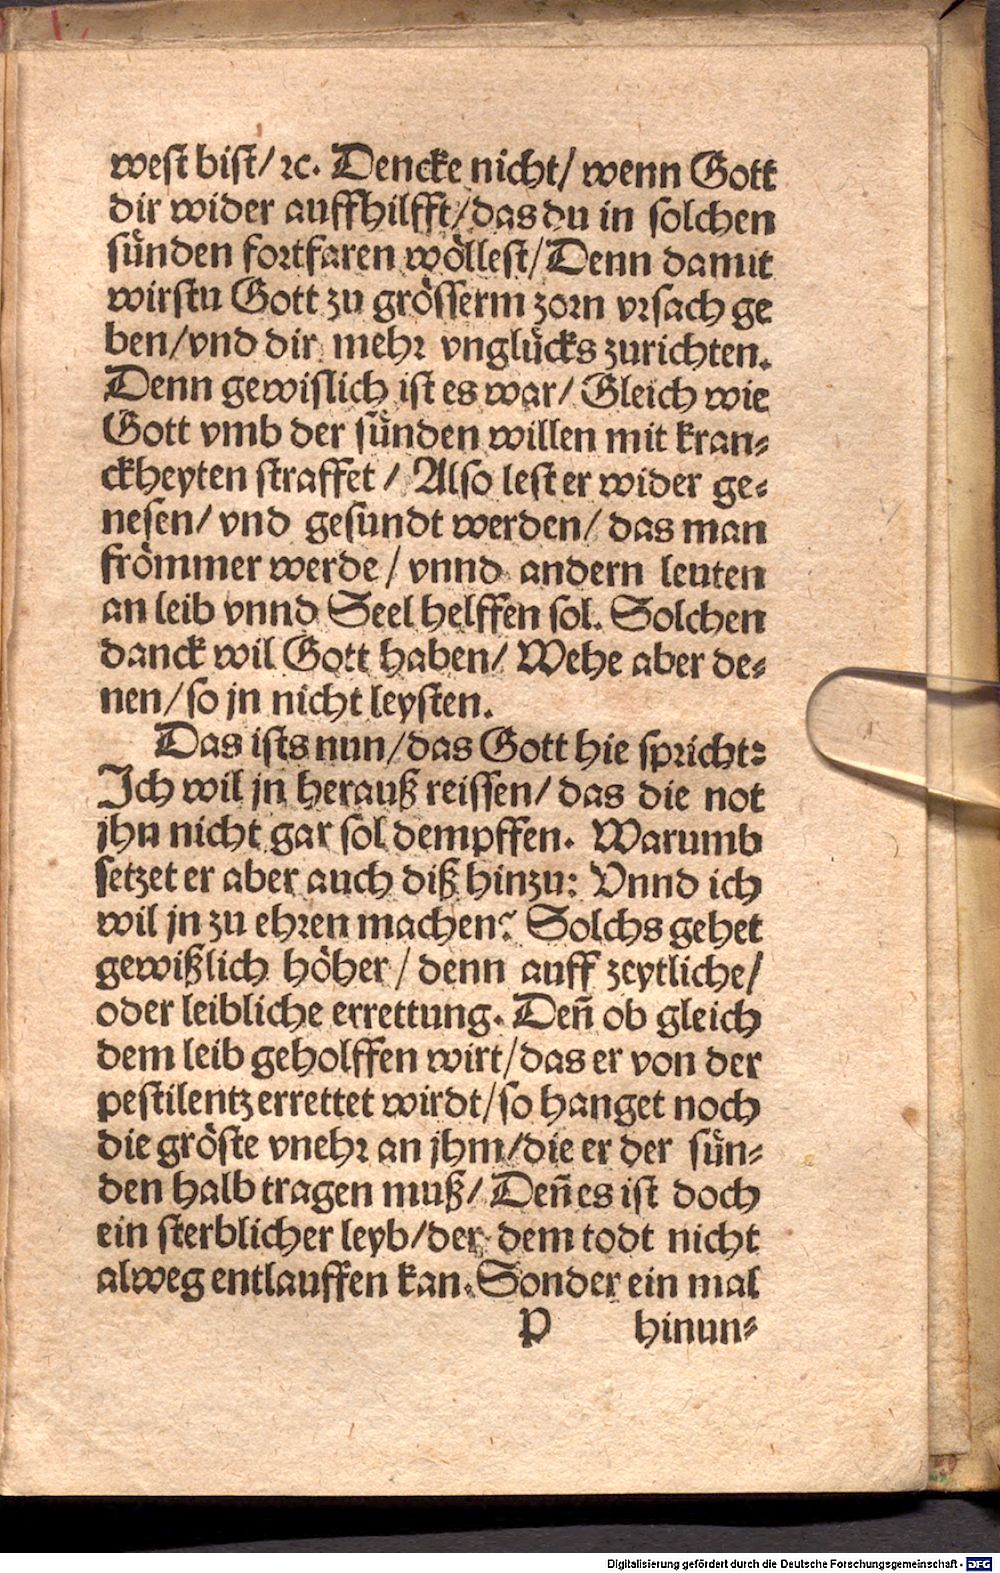 west bist/ ꝛc. Dencke nicht/ wenn Gott
dir wider auffhilfft/ das du in solchen
sünden fortfaren wöllest/ Denn damit
wirstu Gott zu grösserm zorn vrsach ge
ben/ vnd dir mehr vnglücks zurichten.
Denn gewislich ist es war/ Gleich wie
Gott vmb der sünden willen mit kran-
ckheyten straffet/ Also lest er wider ge-
nesen/ vnd gesundt werden/ das man
frömmer werde/ vnnd andern leuten
an leib vnnd Seel helffen sol. Solchen
danck wil Gott haben/ Wehe aber de-
nen/ so jn nicht leysten.
Das ists nun/ das Gott hie spricht:
Ich wil jn herauß reissen/ das die not
jhn nicht gar sol dempffen. Warumb
setzet er aber auch diß hinzu: Vnnd ich
wil jn zu ehren machen? Solchs gehet
gewißlich höher/ denn auff zeytliche/
oder leibliche errettung. Deñ ob gleich
dem leib geholffen wirt/ das er von der
pestilentz errettet wirdt/ so hanget noch
die gröste vnehr an jhm/ die er der sün-
den halb tragen muß/ Deñ es ist doch
ein sterblicher leyb/ der dem todt nicht
alweg entlauffen kan. Sonder ein mal
P hinun-
Digitalisierung gefördert durch die Deutsche Forschungsgemeinschaft - DFG